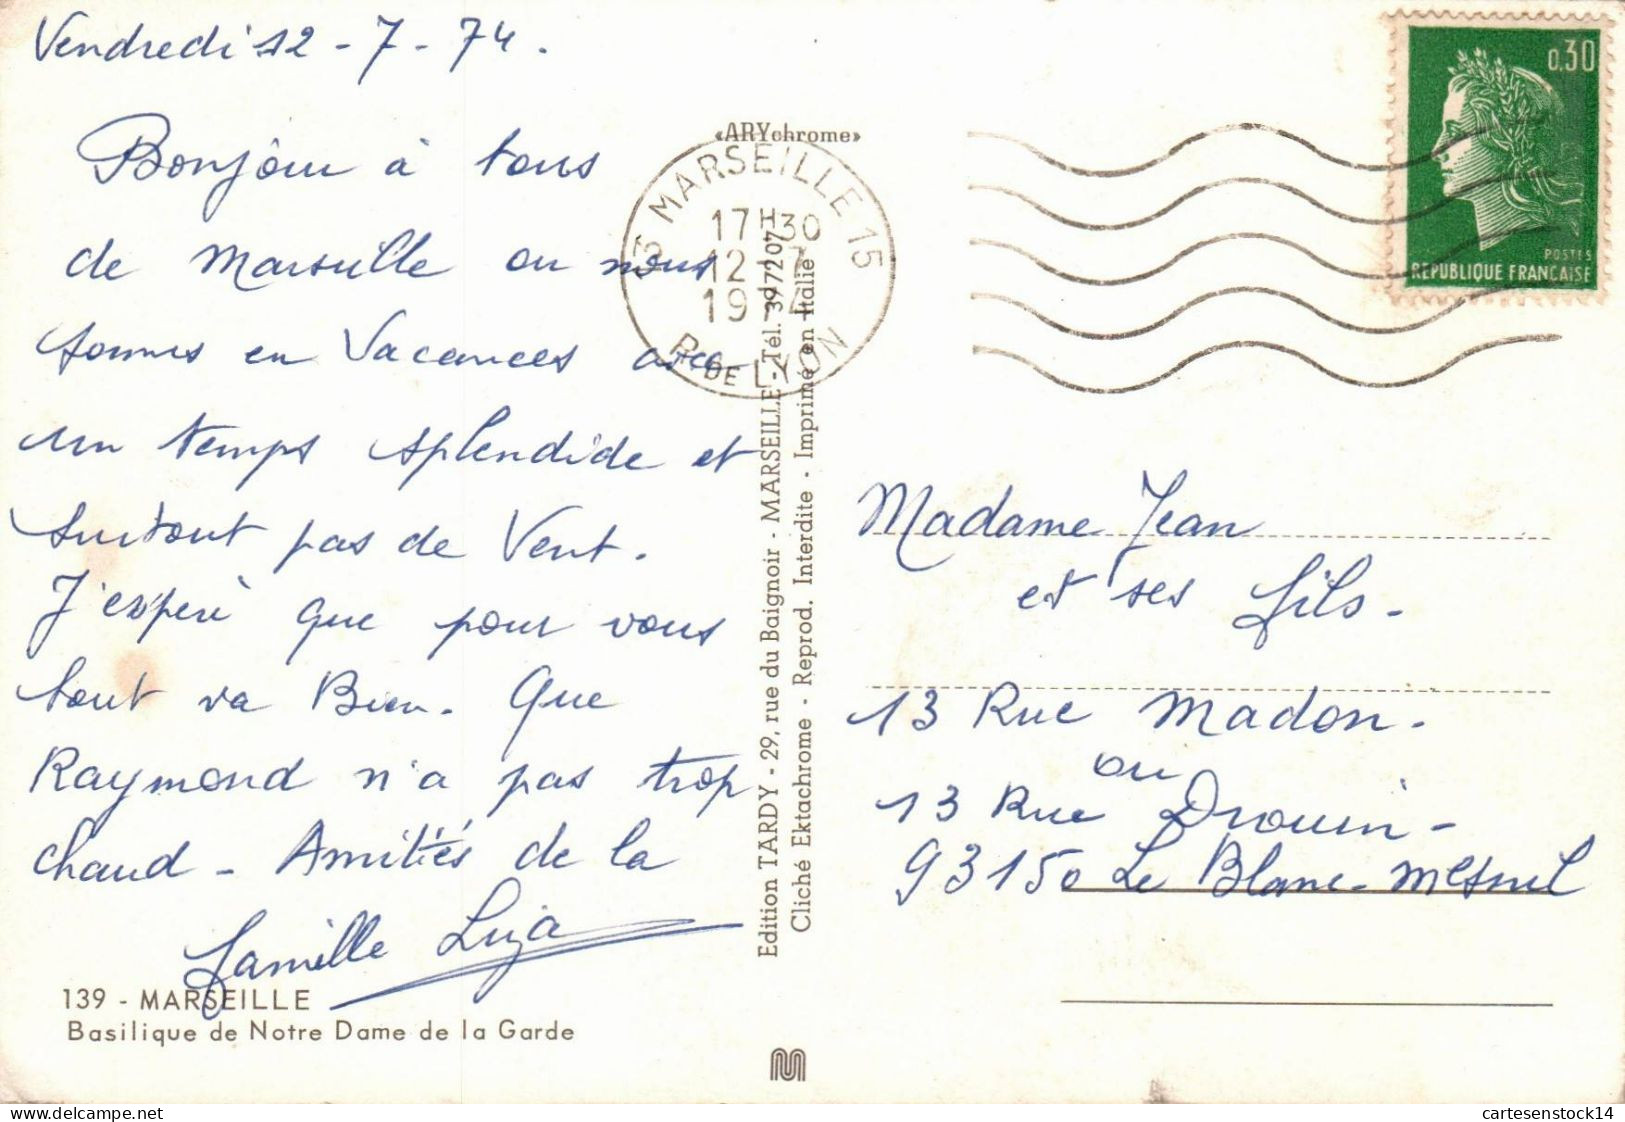 Vendredi 12 - 7 - 74.
Bonjour à tous
de Marseille ou nous
sommes en Vacances avec
un temps splendide et
surtout pas de Vent.
J'experè que pour vous
tout va Bien. Que
Raymond n'a pas trop
chaud - Amitiés de la
famille Luja
139 - MARSEILLE
Basilique de Notre Dame de la Garde
«ARYchrome»
13 MARSEILLE 15
17H30
12 - 7
1974
R. DE LYON
Edition TARDY - 29, rue du Baignoir - MARSEILLE - Tél. 39 72 07
Cliché Ektachrome - Reprod. Interdite - Imprimé en Italie
0,30
POSTES
REPUBLIQUE FRANCAISE
Madame Jean
et ses fils.
13 Rue Madon.
ou
13 Rue Drouin -
93150 Le Blanc-Mesnil
cartesenstock14